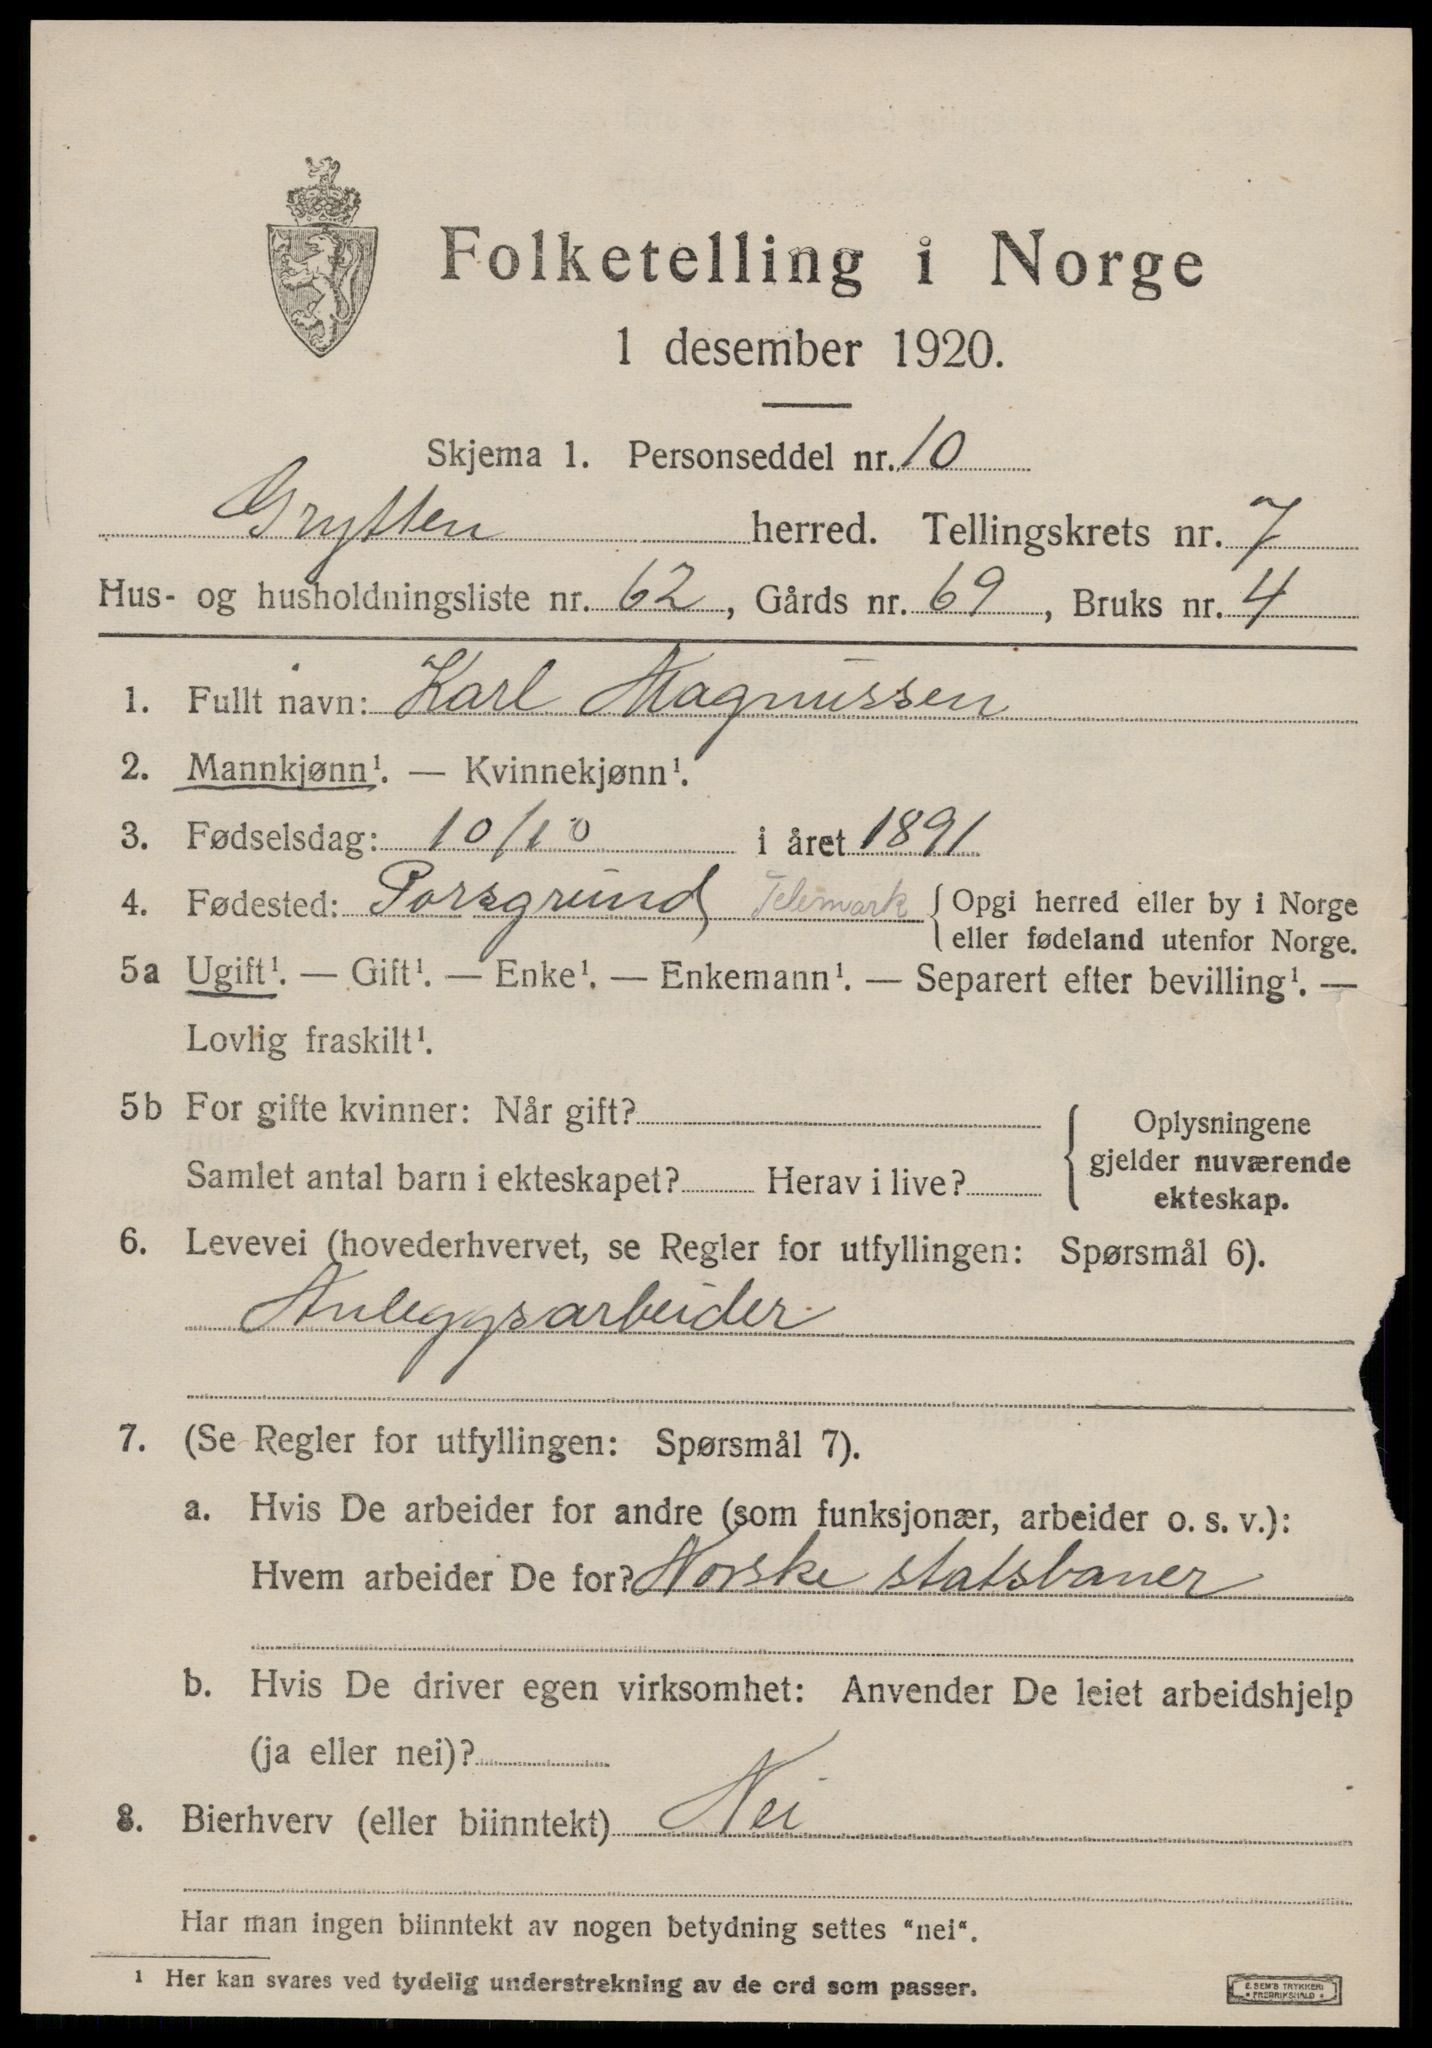 Folketelling i Norge
1 desember 1920.
Skjema 1. Personseddel nr. 10
Grytten herred. Tellingskrets nr. 7
Hus- og husholdningsliste nr. 62, Gårds nr. 69, Bruks nr. 4
1. Fullt navn: Karl Magnussen
2. Mannkjønn¹. — Kvinnekjønn¹.
3. Fødselsdag: 10/10 i året 1891
4. Fødested: Porsgrund, Telemark { Opgi herred eller by i Norge
eller fødeland utenfor Norge.
5a Ugift¹. — Gift¹. — Enke¹. — Enkemann¹. — Separert efter bevilling¹. —
Lovlig fraskilt¹.
5b For gifte kvinner: Når gift?
Samlet antal barn i ekteskapet? Herav i live?
{ Oplysningene
gjelder nuværende
ekteskap.
6. Levevei (hovederhvervet, se Regler for utfyllingen: Spørsmål 6).
Anleggsarbeider
7. (Se Regler for utfyllingen: Spørsmål 7).
a. Hvis De arbeider for andre (som funksjonær, arbeider o. s. v.):
Hvem arbeider De for? Norske statsbaner
b. Hvis De driver egen virksomhet: Anvender De leiet arbeidshjelp
(ja eller nei)?
8. Bierhverv (eller biinntekt) Nei
Har man ingen biinntekt av nogen betydning settes "nei".
¹ Her kan svares ved tydelig understrekning av de ord som passer.
E. SEM'S TRYKKERI
FREDRIKSHALD